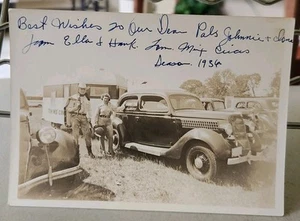 Best Wishes to Our Dear Pals Johnnie &
from Ella & Hank. Tom Mix Circus
Season. 1936